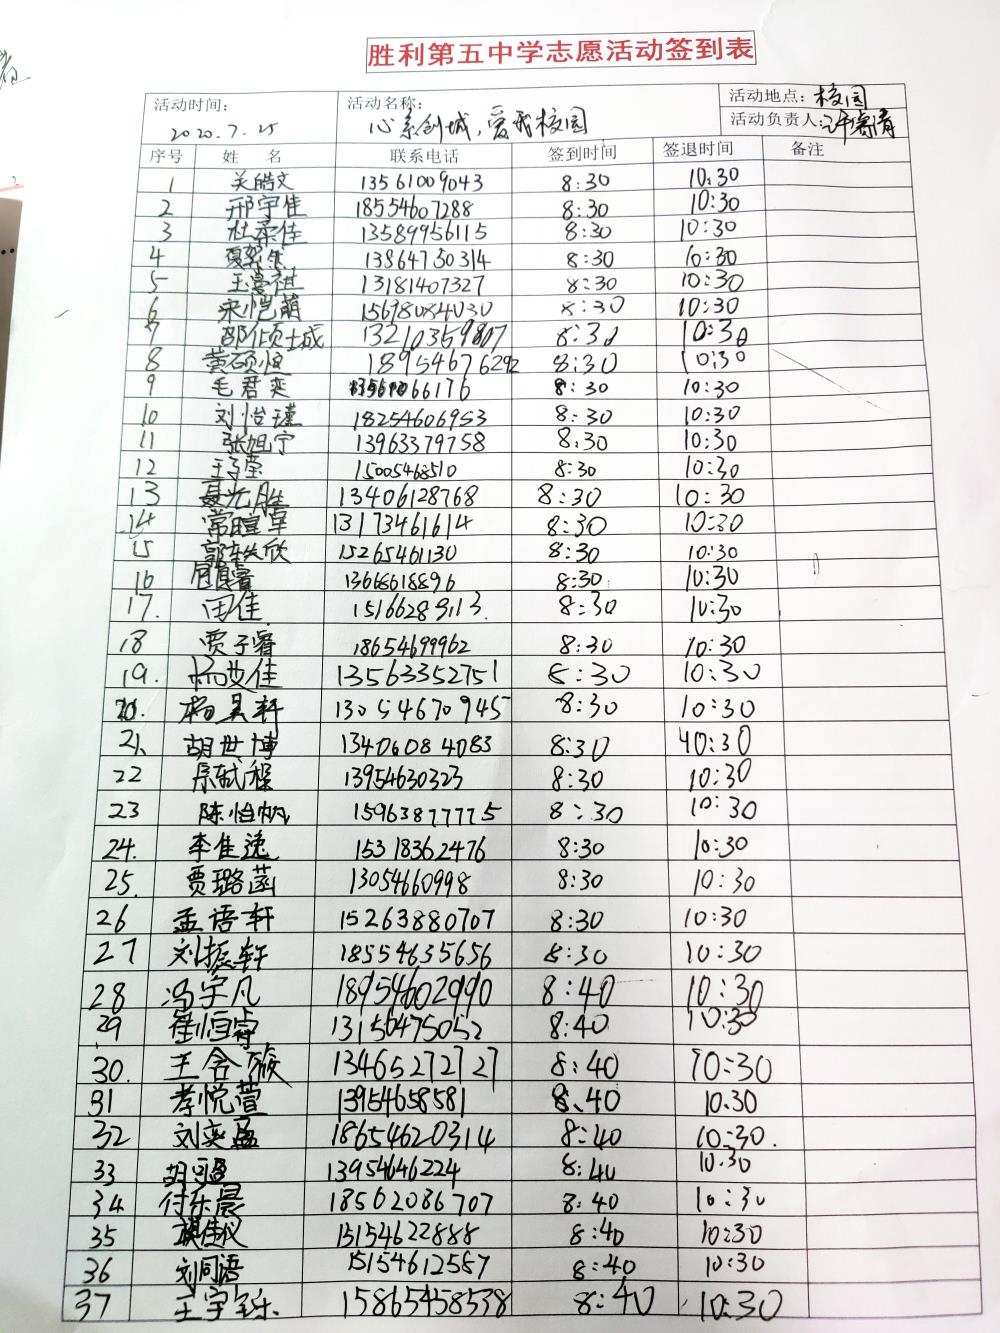 胜利第五中学志愿活动签到表
活动时间: 活动名称: 活动地点: 校园
2020.7.25 心系创城,爱我校园 活动负责人:
序号 姓名 联系电话 签到时间 签退时间 备注
1 关皓文 13561009043 8:30 10:30
2 邢宇佳 18554607288 8:30 10:30
3 杜柔佳 13589956115 8:30 10:30
4 13864730314 8:30 10:30
5 13181407327 8:30 10:30
6 宋恺萌 15698084030 8:30 10:30
7 13210359807 8:30 10:30
8 黄硕恒 18954676292 8:30 10:30
9 毛君奕 8:30 10:30
10 刘怡瑾 18254606953 8:30 10:30
11 张旭宁 13963379758 8:30 10:30
12 王子莹 15005468510 8:30 10:30
13 聂光胜 13406128768 8:30 10:30
14 13173461614 8:30 10:30
15 15265461130 8:30 10:30
16 13668618896 8:30 10:30
17. 田佳 15166289113 8:30 10:30
18 贾子睿 18654699962 8:30 10:30
19. 13563352751 8:30 10:30
20. 杨昊轩 13054670945 8:30 10:30
21. 胡世博 13406084083 8:30 10:30
22 13954630323 8:30 10:30
23 陈怡帆 15963877775 8:30 10:30
24. 李佳逸 15318362476 8:30 10:30
25. 贾璐菡 13054660998 8:30 10:30
26 孟语轩 15263880707 8:30 10:30
27 刘振轩 18554635656 8:30 10:30
28 冯宇凡 18954602990 8:40 10:30
29 崔恒睿 13150475052 8:40 10:30
30. 王含筱 13465272727 8:40 10:30
31 李悦萱 13954658581 8:40 10:30
32 刘奕孟 18654620314 8:40 10:30.
33 13954646224 8:40 10:30
34 付乐晨 18562086707 8:40 10:30
35 15154622888 8:40 10:30
36 刘同语 15154612557 8:40 10:30
37 王宇乐 15865458538 8:40 10:30